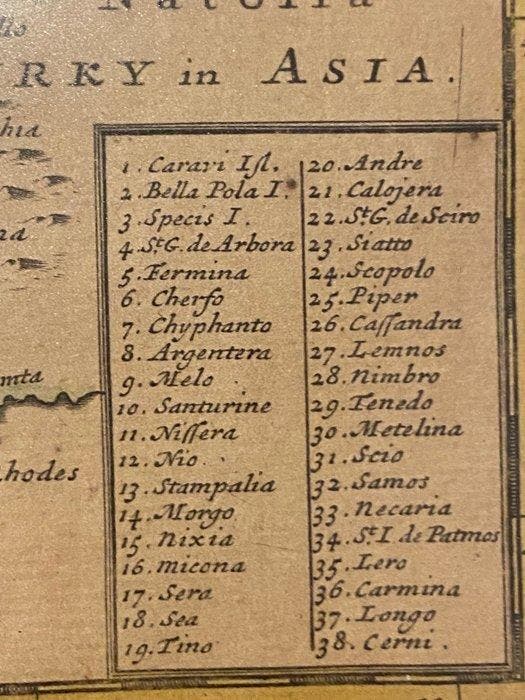 Natolia
RKY in ASIA.
hia
na
mta
hodes
1. Caravi Iſl.
2. Bella Pola I.
3. Specis I.
4. St G. de Arbora
5. Fermina
6. Cherfo
7. Chyphanto
8. Argentera
9. Melo
10. Santurine
11. Niſſera
12. Nio
13. Stampalia
14. Morgo
15. Nixia
16. micona
17. Sera
18. Sea
19. Tino
20. Andre
21. Calojera
22. St G. de Sciro
23. Siatto
24. Scopolo
25. Piper
26. Caſſandra
27. Lemnos
28. Nimbro
29. Tenedo
30. Metelina
31. Scio
32. Samos
33. Necaria
34. St I. de Patmos
35. Lero
36. Carmina
37. Longo
38. Cerni.